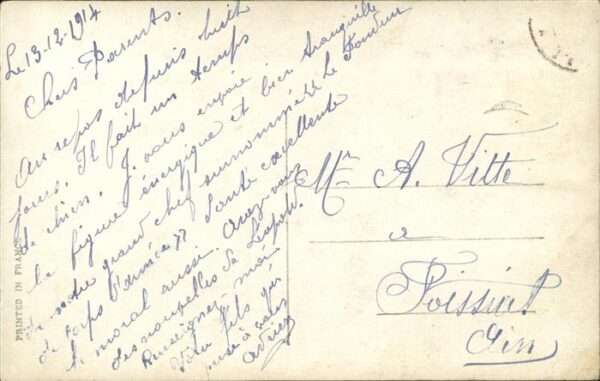 Le 13-12-1914
Chers Parents.
Au repos depuis huit
jours. Il fait un temps
de chien. Je vous envoie
la figure énergique et bien tranquille
de notre grand chef surnommé le
de corps d'armée Santé excellente
le moral aussi. Avez vous
des nouvelles de
Renseignez-moi
Votre fils qui
pense à vous
Mr A. Vitte
a
Poissiat
Ain
PRINTED IN FRANCE